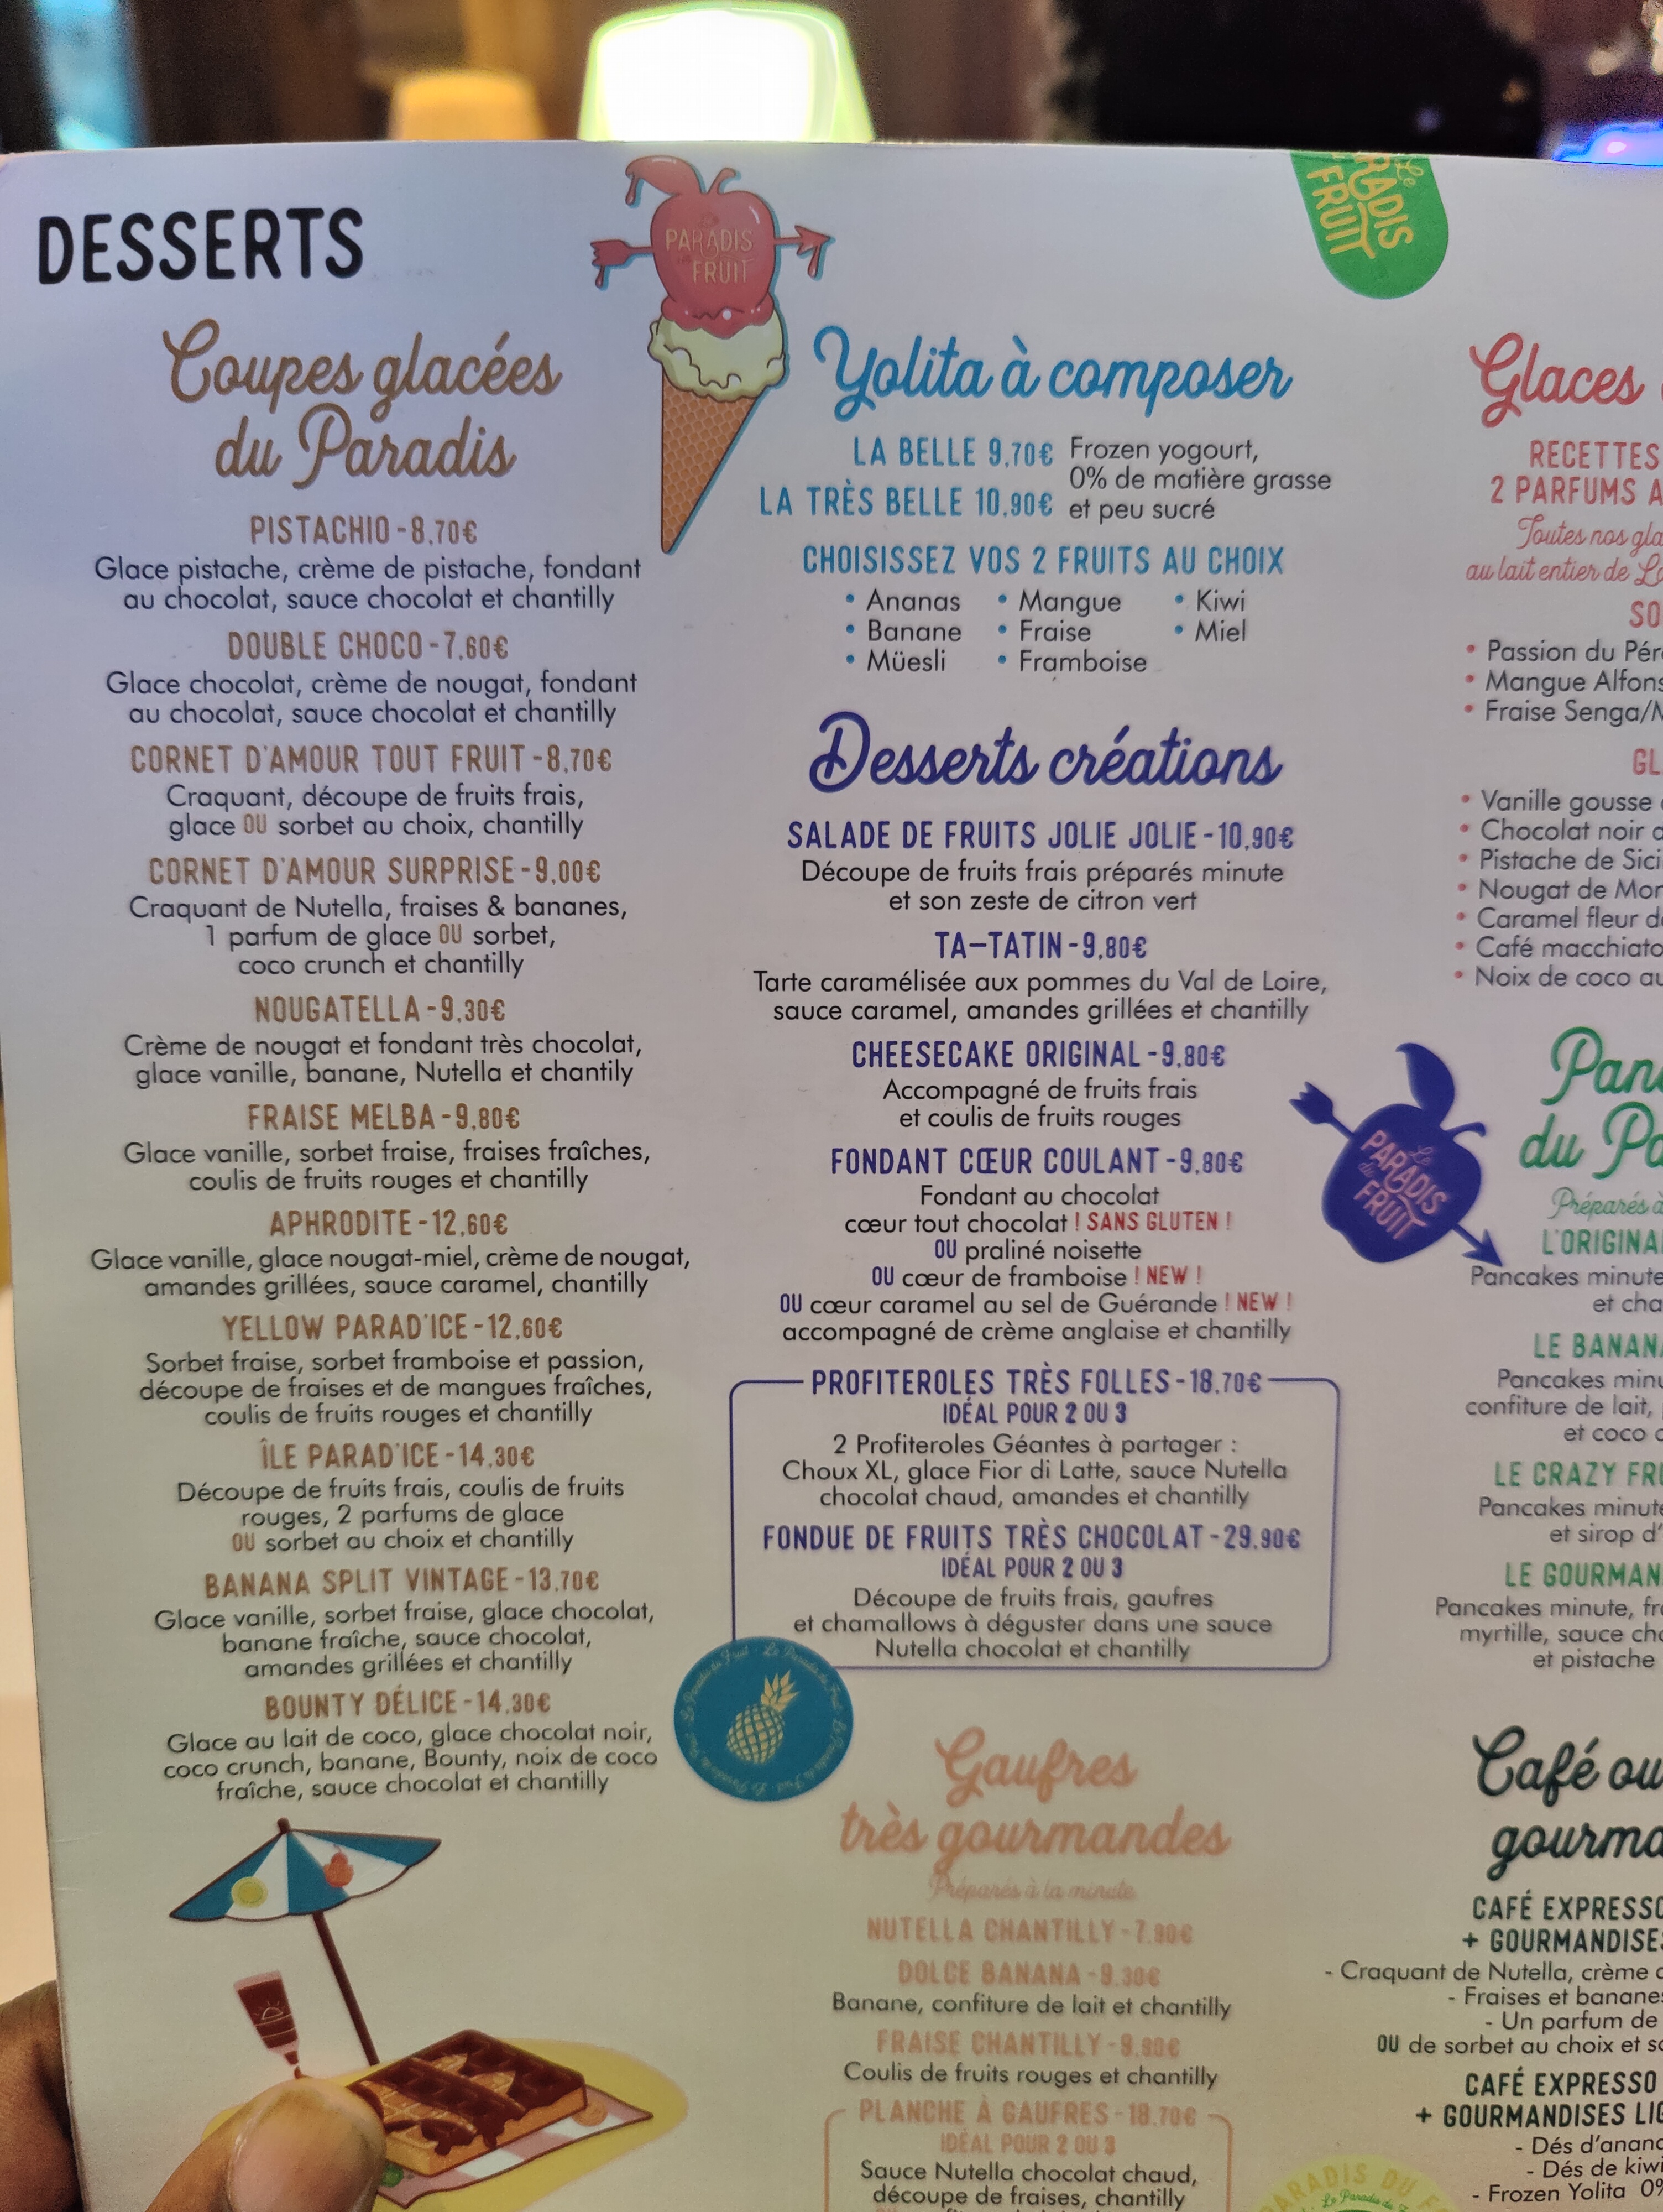 DESSERTS
PARADIS
FRUIT
Le
PARADIS
FRUIT
Coupes glacées
du Paradis
PISTACHIO - 8,70€
Glace pistache, crème de pistache, fondant
au chocolat, sauce chocolat et chantilly
DOUBLE CHOCO - 7,60€
Glace chocolat, crème de nougat, fondant
au chocolat, sauce chocolat et chantilly
CORNET D'AMOUR TOUT FRUIT - 8,70€
Craquant, découpe de fruits frais,
glace OU sorbet au choix, chantilly
CORNET D'AMOUR SURPRISE - 9,00€
Craquant de Nutella, fraises & bananes,
1 parfum de glace OU sorbet,
coco crunch et chantilly
NOUGATELLA - 9,30€
Crème de nougat et fondant très chocolat,
glace vanille, banane, Nutella et chantily
FRAISE MELBA - 9,80€
Glace vanille, sorbet fraise, fraises fraîches,
coulis de fruits rouges et chantilly
APHRODITE - 12,60€
Glace vanille, glace nougat-miel, crème de nougat,
amandes grillées, sauce caramel, chantilly
YELLOW PARAD'ICE - 12,60€
Sorbet fraise, sorbet framboise et passion,
découpe de fraises et de mangues fraîches,
coulis de fruits rouges et chantilly
ÎLE PARAD'ICE - 14,30€
Découpe de fruits frais, coulis de fruits
rouges, 2 parfums de glace
OU sorbet au choix et chantilly
BANANA SPLIT VINTAGE - 13,70€
Glace vanille, sorbet fraise, glace chocolat,
banane fraîche, sauce chocolat,
amandes grillées et chantilly
BOUNTY DÉLICE - 14,30€
Glace au lait de coco, glace chocolat noir,
coco crunch, banane, Bounty, noix de coco
fraîche, sauce chocolat et chantilly
Yolita à composer
LA BELLE 9,70€
LA TRÈS BELLE 10,90€
Frozen yogourt,
0% de matière grasse
et peu sucré
CHOISISSEZ VOS 2 FRUITS AU CHOIX
• Ananas • Mangue • Kiwi
• Banane • Fraise • Miel
• Müesli • Framboise
Desserts créations
SALADE DE FRUITS JOLIE JOLIE - 10,90€
Découpe de fruits frais préparés minute
et son zeste de citron vert
TA-TATIN - 9,80€
Tarte caramélisée aux pommes du Val de Loire,
sauce caramel, amandes grillées et chantilly
CHEESECAKE ORIGINAL - 9,80€
Accompagné de fruits frais
et coulis de fruits rouges
FONDANT CŒUR COULANT - 9,80€
Fondant au chocolat
cœur tout chocolat ! SANS GLUTEN !
OU praliné noisette
OU cœur de framboise ! NEW !
OU cœur caramel au sel de Guérande ! NEW !
accompagné de crème anglaise et chantilly
PROFITEROLES TRÈS FOLLES - 18,70€
IDÉAL POUR 2 OU 3
2 Profiteroles Géantes à partager :
Choux XL, glace Fior di Latte, sauce Nutella
chocolat chaud, amandes et chantilly
FONDUE DE FRUITS TRÈS CHOCOLAT - 29,90€
IDÉAL POUR 2 OU 3
Découpe de fruits frais, gaufres
et chamallows à déguster dans une sauce
Nutella chocolat et chantilly
Gaufres
très gourmandes
Préparés à la minute
NUTELLA CHANTILLY - 7,90€
DOLCE BANANA - 9,30€
Banane, confiture de lait et chantilly
FRAISE CHANTILLY - 9,90€
Coulis de fruits rouges et chantilly
PLANCHE À GAUFRES - 18,70€
IDÉAL POUR 2 OU 3
Sauce Nutella chocolat chaud,
découpe de fraises, chantilly
Glaces
RECETTES
2 PARFUMS A
Toutes nos gla
au lait entier de
SO
• Passion du Pér
• Mangue Alfons
• Fraise Senga/
GL
• Vanille gousse
• Chocolat noir
• Pistache de Sici
• Nougat de Mor
• Caramel fleur d
• Café macchiato
• Noix de coco au
Le
PARADIS
du
FRUIT
Panc
du Pa
Préparés à
L'ORIGINA
Pancakes minute
et cha
LE BANAN
Pancakes minu
confiture de lait,
et coco
LE CRAZY FR
Pancakes minute
et sirop d'
LE GOURMAN
Pancakes minute, fr
myrtille, sauce ch
et pistache
Café ou
gourma
CAFÉ EXPRESSO
+ GOURMANDISES
- Craquant de Nutella, crème
- Fraises et bananes
- Un parfum de
OU de sorbet au choix et s
CAFÉ EXPRESSO
+ GOURMANDISES LI
- Dés d'anana
- Dés de kiwi
- Frozen Yolita 0%
PARADIS DU